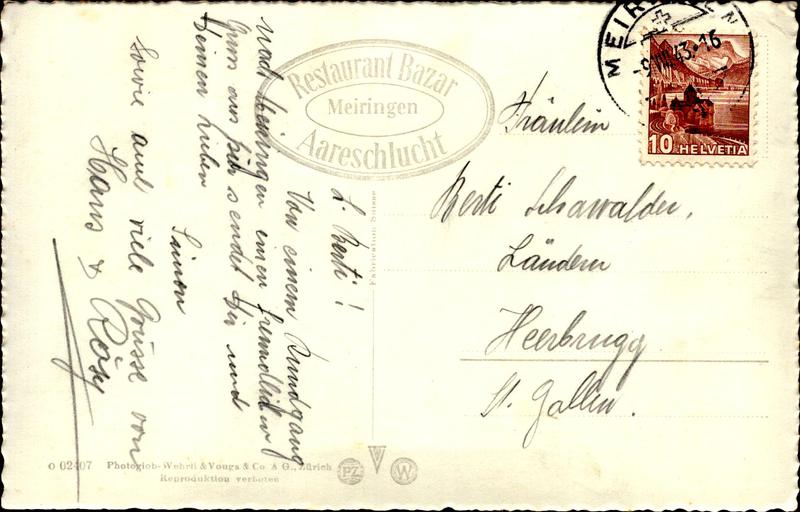 Restaurant Bazar
Meiringen
Aareschlucht
MEIRINGEN
10 HELVETIA
Fräulein
Berti Schawalder,
Ländern
Heerbrugg
St. Gallen.
L. Berti!
Von einem Rundgang
nach Meiringen einen freundlichen
Gruss aus sendet Dir und
Deinen Lieben
Simon
Sowie auch viele Grüsse von
Hans & Rösy
Fabrication Suisse
O 02407 Photoglob-Wehrli & Vouga & Co. A G., Zürich
Reproduktion verboten
PZ
W